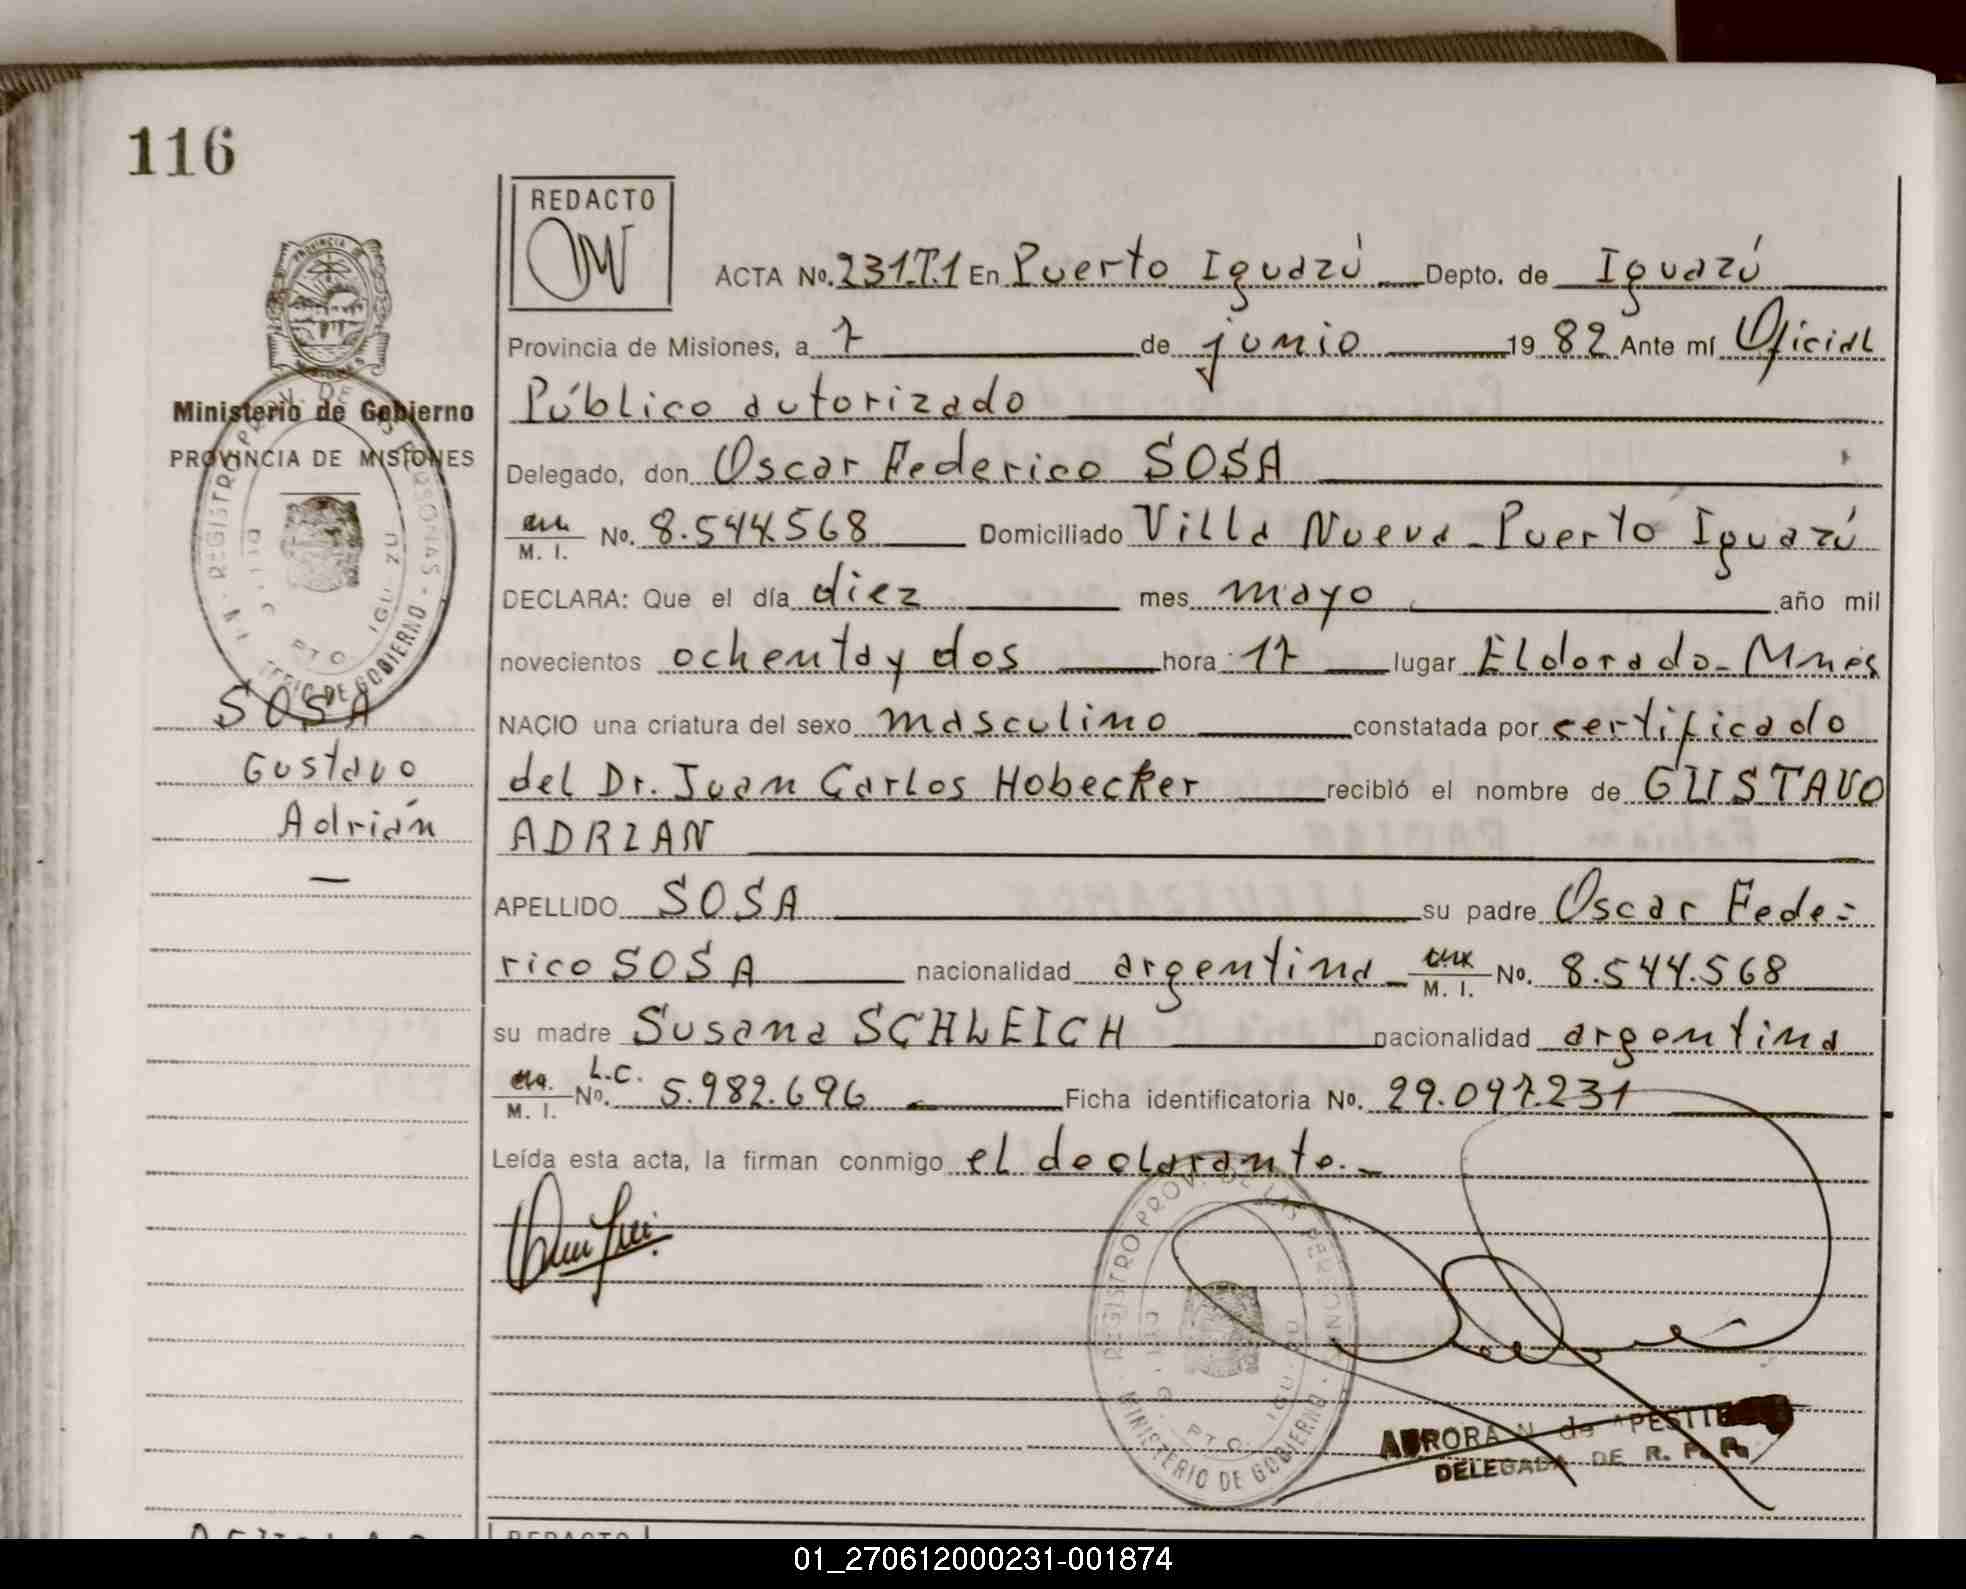 116
REDACTO
ACTA No. 231.T.1 En Puerto Iguazú Depto. de Iguazú
Provincia de Misiones, a 7 de junio 1982 Ante mí Oficial
Público autorizado
Delegado, don Oscar Federico SOSA
M. I. No. 8.544.568 Domiciliado Villa Nueva - Puerto Iguazú
DECLARA: Que el día diez mes mayo año mil
novecientos ochenta y dos hora 17 lugar Eldorado - Mnes
NACIO una criatura del sexo masculino constatada por certificado
del Dr. Juan Carlos Hobecker recibió el nombre de GUSTAVO
ADRIAN
APELLIDO SOSA su padre Oscar Fede=
rico SOSA nacionalidad argentina M. I. No. 8.544.568
su madre Susana SCHLEICH nacionalidad argentina
M. I. No. L.C. 5.982.696 Ficha identificatoria No. 29.097.231
Leída esta acta, la firman conmigo el declarante.-
Ministerio de Gobierno
PROVINCIA DE MISIONES
SOSA
Gustavo
Adrián
REGISTRO PROV. DE LAS PERSONAS
MINISTERIO DE GOBIERNO
PTO. IGUAZU
AURORA N. de
DELEGADA DE R. P. P.
REDACTO
01_270612000231-001874